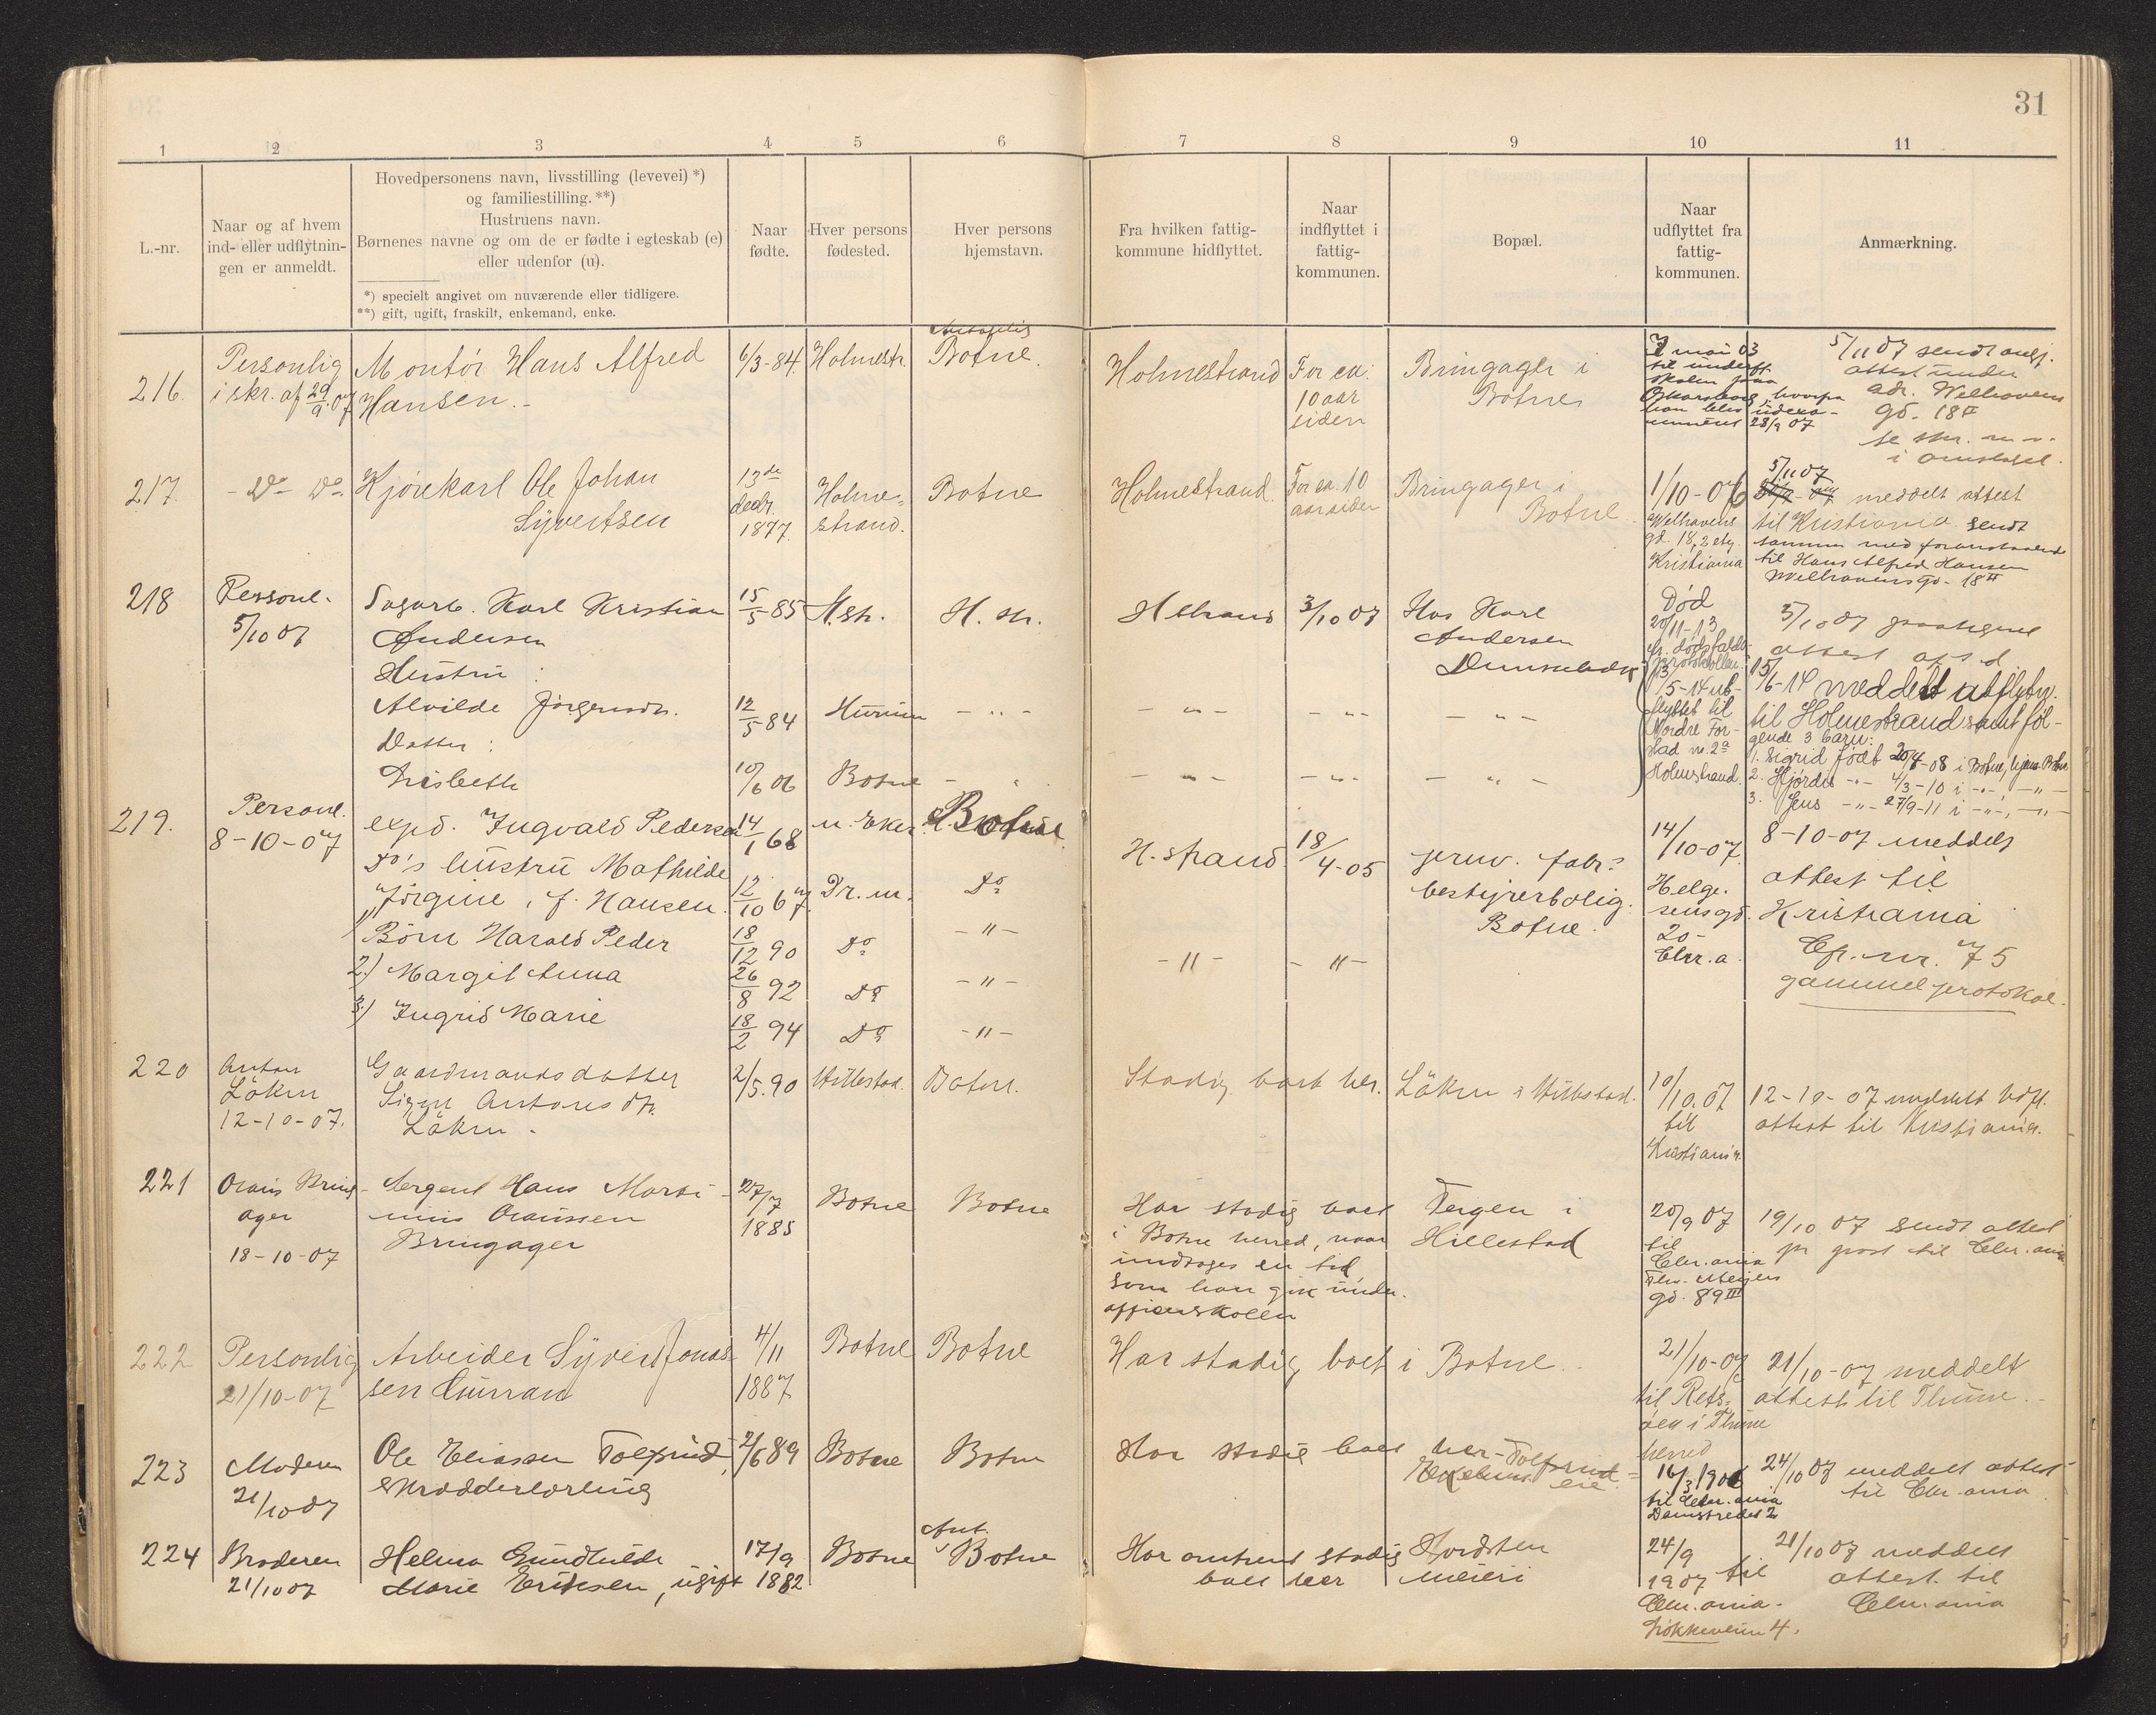 31
1
2
3
4
5
6
7
8
9
10
11
L.-nr.
Naar og af hvem
ind- eller udflytnin-
gen er anmeldt.
Hovedpersonens navn, livsstilling (levevei) *)
og familiestilling. **)
Hustruens navn.
Børnenes navne og om de er fødte i egteskab (e)
eller udenfor (u).
*) specielt angivet om nuværende eller tidligere.
**) gift, ugift, fraskilt, enkemand, enke.
Naar
fødte.
Hver persons
fødested.
Hver persons
hjemstavn.
Fra hvilken fattig-
kommune hidflyttet.
Naar
indflyttet i
fattig-
kommunen.
Bopæl.
Naar
udflyttet fra
fattig-
kommunen.
Anmærkning.
216.
Personlig
i skr. af 29/9.07
Montör Hans Alfred
Hansen.-
6/3-84.
Holmestr.
Antagelig
Botne.
Holmestrand
For ca.
10 aar
siden
Bringager i
Botne
mai 03
til underoff.
skolen paa
Oskarsborg, hvorfra
han blev udexa-
mineret 28/9 07
5/11 07 sendt
attest under
adr. Welhavens
gd. 18 II
se skr. m. v.
i omslaget.
217.
- Do - Do -
Kjörekarl Ole Johan
Syvertsen
13de
decbr.
1877.
Holme-
strand.
Botne
Holmestrand.
For ca. 10
aar siden
Bringager i
Botne.
1/10-06
Welhavens
gd. 18, 2 etg.
Kristiania
5/11 07
meddelt attest
til Kristiania sendt
sammen med foranstaaende
til Hans Alfred Hansen
Welhavensgd. 18 II
218
Personl.
5/10 07
Sagarb. Karl Kristian
Andersen
Hustru :
Alvilde Jörgensdr.
Datter :
Lisbeth
15/5 85
12/5 84
10/6 06
H.str.
Hurum
Botne
H. str.
- " -
H strand
- " -
- " -
3/10 07
- " -
- " -
Hos Karl
Andersen
- " -
- " -
Död
20/11-13
cfr. dödsfalds-
protokollen.
13/5-14 ut-
flyttet til
Nordre For-
stad nr. 2a
Holmestrand.
5/10 07 paategnet
attest
15/6-14 meddelt utflytn.
til Holmestrand samt föl-
gende 3 barn:
1. Sigrid født 20/4-08 i Botne, hjemst. Botne
2. Hjördis -"- 4/3-10 i -"-, -"-
3. Jens -"- 27/9-11 i -"-, -"-
219.
Personl.
8-10-07
exped. Ingvald Pedersen
Do's hustru Mathilde
Jörgine, f. Hansen.
1) Börn Harald Peder
2) Margit Anna
3) Ingrid Marie
14/1 68
12/10 67.
18/12 90
26/8 92
18/2 94
n. Eker.
Dr. m.
Do
Do
Do
Botne
Do
- " -
- " -
- " -
H. strand
- " -
18/4-05
- " -
bestyrerbolig.
Botne.
14/10-07.
Helge-
sensgd.
20-
Chr.a.
8-10-07 meddelt
attest til
Kristiania
Cfr. nr. 75
gammel protokol.
220
Anton
Lökin
12-10-07.
Gaardmandsdatter
Signe Antonesdtr.
Lökin.
2/5.90
Hillestad.
Botne.
Stadig boet her.
Lökin i Hillestad.
10/10.07
til
Kristiania.
12-10-07 meddelt Udfl.
attest til Kristiania.
221
Olaus Bring-
ager
18-10-07
Sergent Hans Marti-
nius Olaussen
Bringager
27/7
1885
Botne
Botne
Har stadig boet
i Botne herred, naar
undtages en tid
som han gik under-
officerskolen
Tergen i
Hillestad
20/9 07
til
Chr.ania
Thv. Meyers
gd. 89 III
19/10 07 sendt attest
pr post til Chr.ania
222
Personlig
21/10-07
Arbeider Syvert Jonas-
sen Gurran
4/11
1887
Botne
Botne
Har stadig boet i Botne.
21/10-07
til Rets-
i Thune
herred
21/10-07 meddelt
attest til Thune.
223
Moderen
21/10 07
Ole Eliassen Tolfsrud,
Skrædderlærling
2/6 89
Botne
Botne
Har stadig boet her - Tolfsrud-
eie.
16/3 1906
til Chr.ania
Damstredet 2
24/10 07 meddelt attest
til Chr.ania
224
Broderen
21/10 07
Helma Gundhilde
Marie Eriksen, ugift
17/9
1882
Botne
Ant.
Botne
Har omtrent stadig
boet her
Nordsten
meieri
24/9
1907 til
Chr.ania.
Lökkeveien 4.
21/10 07 meddelt
attest. til
Chr.ania